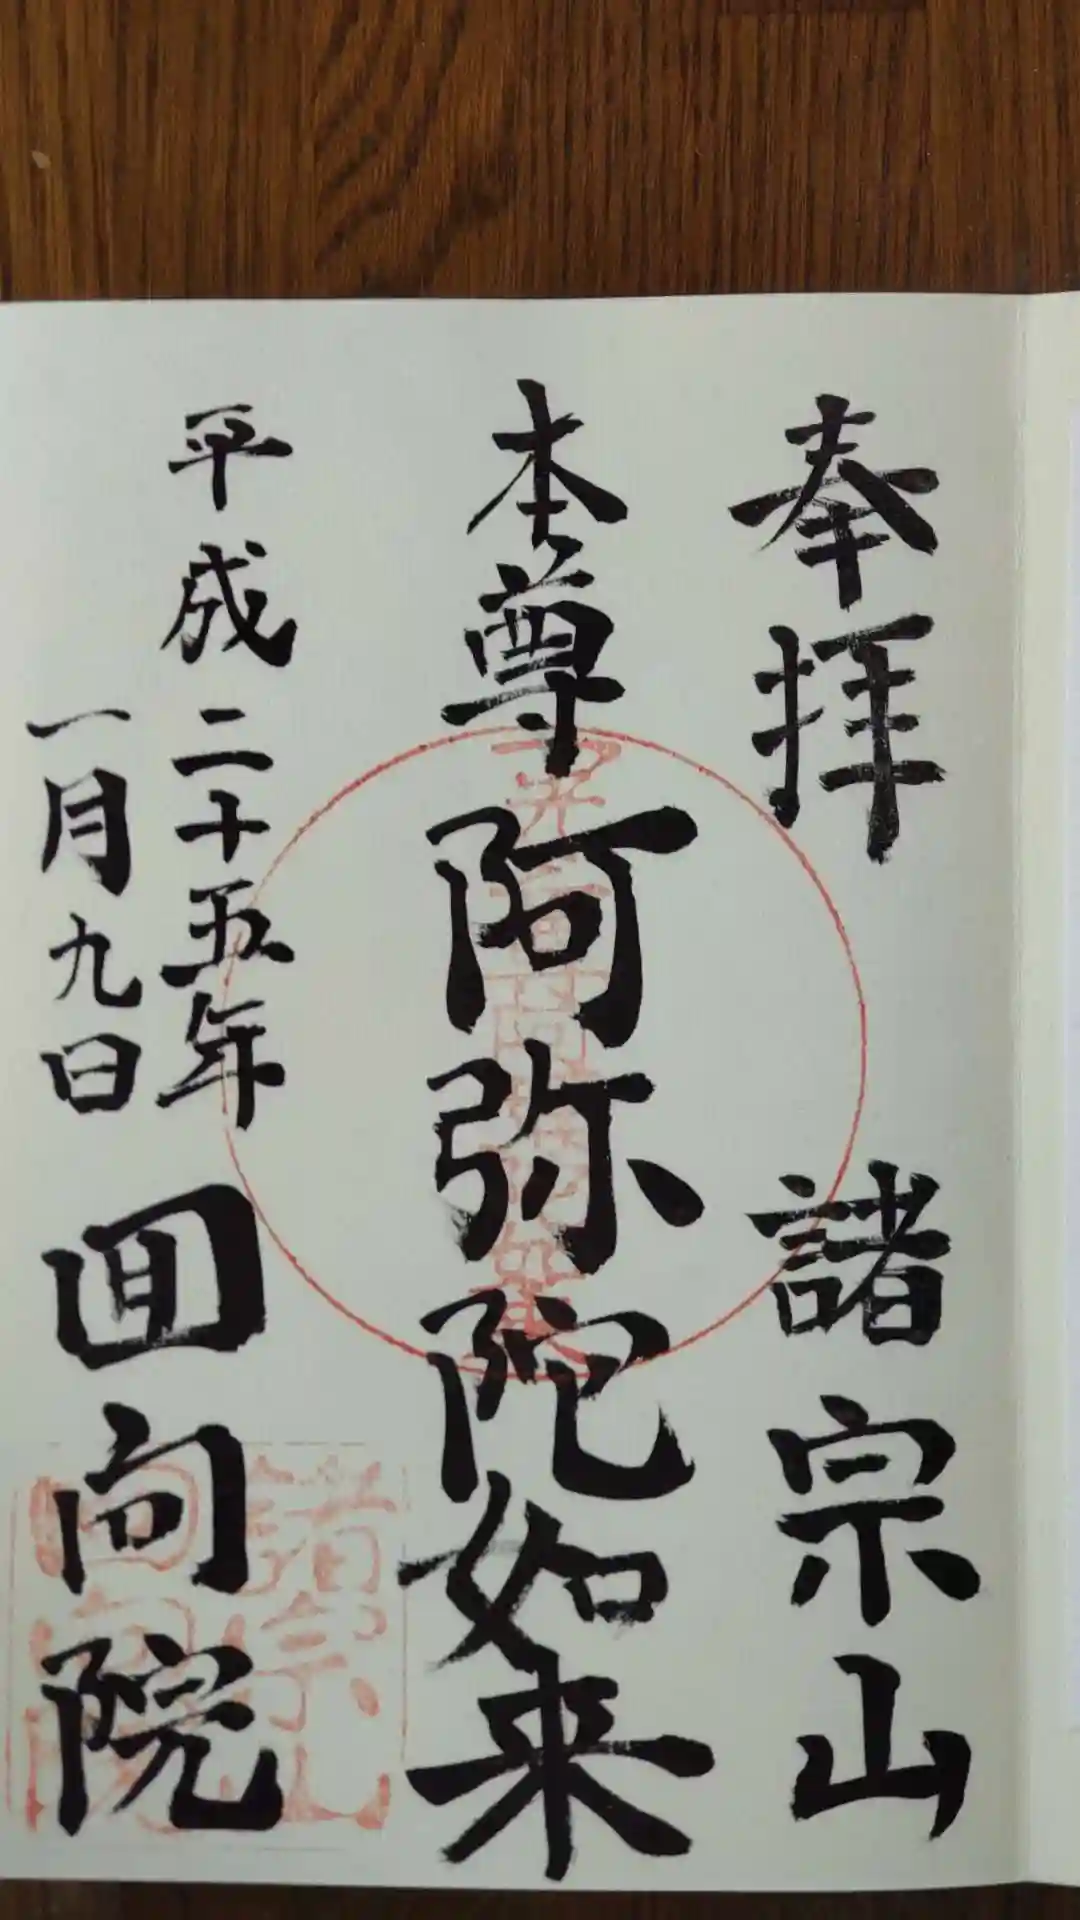 奉拝 諸宗山
本尊 阿弥陀如来
平成二十五年
一月九日
回向院
諸宗山
回向院